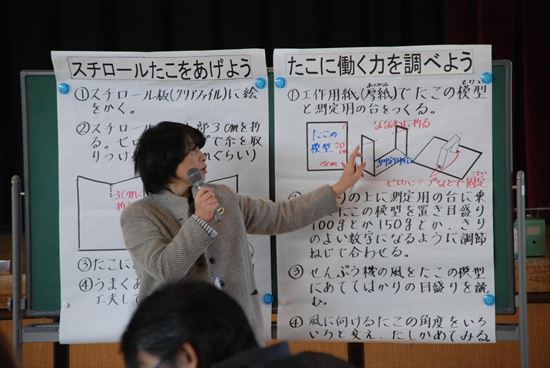 スチロールたこをあげよう
①スチロール板(クリアファイル)に絵
をかく。
②スチロール
部3cmを折
る。セ
プで糸を取
りつけ
ぐらい)
3cm
折
③たこに
④うまくあ
工夫して
たこに働く力を調べよう
①工作用紙(厚紙)でたこの模型
と測定用の台をつくる。
たこの
模型
20cm
15cm
ななめに折る
測定用台
セロハンテープなどで固定
りの上に測定用の台に乗
たこの模型を置き目盛り
100gとか150gとか、きり
のよい数字になるように調節
ねじで合わせる。
③せんぷう機の風をたこの模型
にあててはかりの目盛りを読
む。
④風に向けるたこの角度をいろ
いろと変え、たしかめてみる。